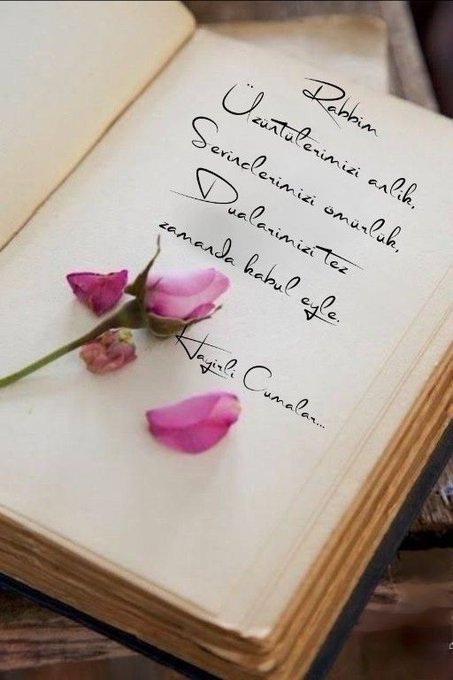 Rabbim
Üzüntülerimizi anlik,
Sevinclerimizi ömürlük,
Dualarimizi tez
zamanda kabul eyle.
Hayirli Cumalar...